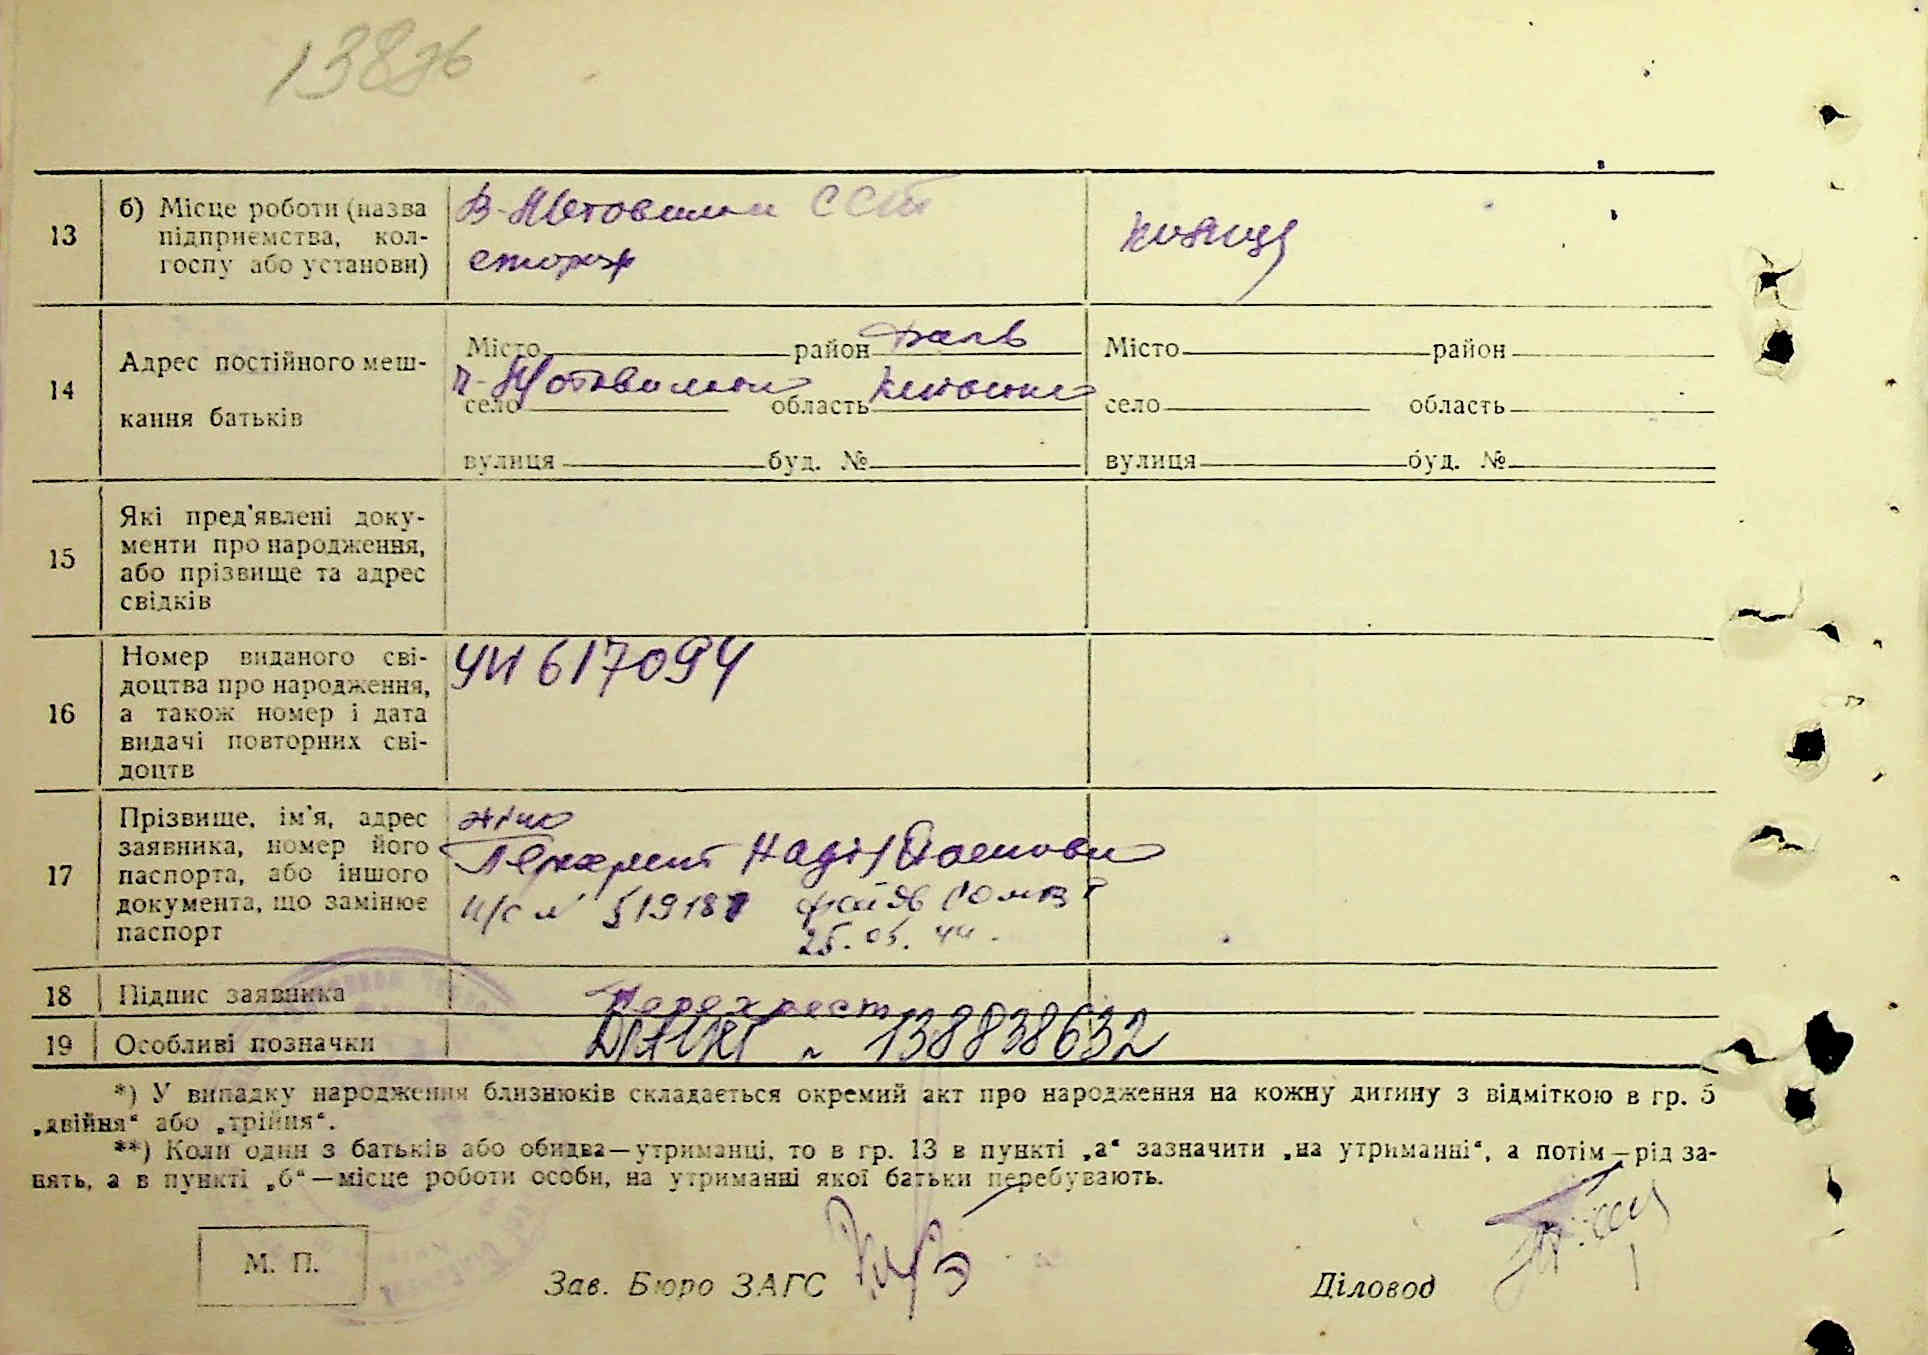 138
13 б) Місце роботи (назва
підприємства, кол-
госпу або установи)
ССТ
сторож
14 Адрес постійного меш-
кання батьків
Місто район
село область
вулиця буд. №
Місто район
село область
вулиця буд. №
15 Які пред'явлені доку-
менти про народження,
або прізвище та адрес
свідків
16 Номер виданого сві-
доцтва про народження,
а також номер і дата
видачі повторних сві-
доцтв
617094
17 Прізвище, ім'я, адрес
заявника, номер його
паспорта, або іншого
документа, що замінює
паспорт
Надія
519187
25.05.44.
18 Підпис заявника
Перехрест
19 Особливі позначки
138838632
*) У випадку народження близнюків складається окремий акт про народження на кожну дитину з відміткою в гр. 5
„двійня“ або „трійня“.
**) Коли один з батьків або обидва—утриманці, то в гр. 13 в пункті „а“ зазначити „на утриманні“, а потім—рід за-
нять, а в пункті „б“—місце роботи особи, на утриманні якої батьки перебувають.
М. П.
Зав. Бюро ЗАГС
Діловод